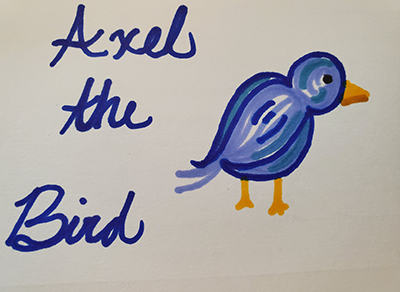 Axel
the
Bird